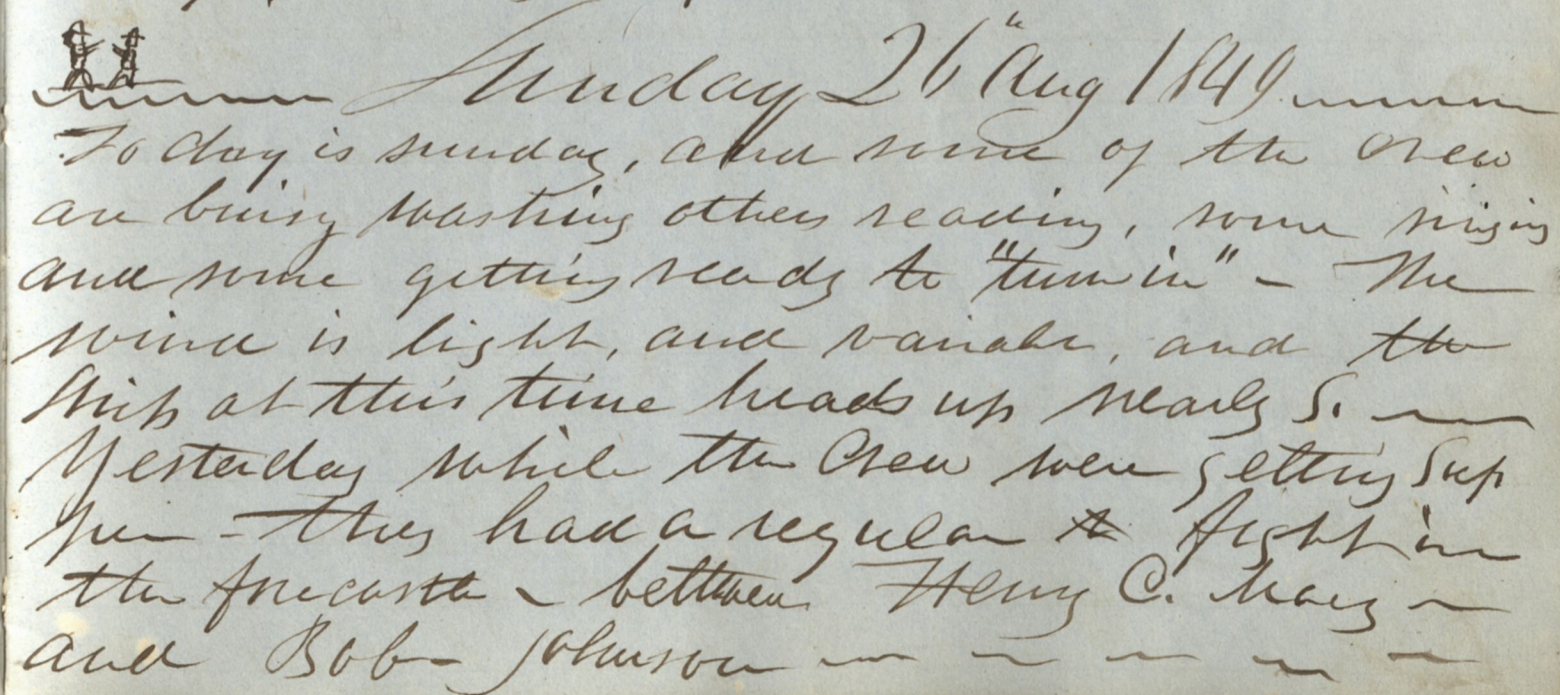 Sunday 26" Aug 1849
To day is sunday, and some of the crew
are buisy washing others reading, some singing
and some getting ready to "turn in" - The
wind is light, and variable, and the
Ship at this time heads up nearly S.
Yesterday while the Crew were getting Sup
per - they had a regular fight in
the forecastle - bettween Henry C.
and Bob Johnson